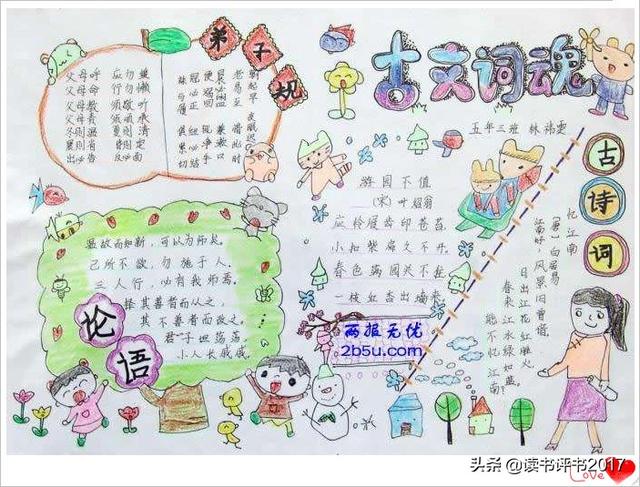 古文词魂
五年三班 林祎雯
弟子规
父母呼 应勿缓
父母命 行勿懒
父母教 须敬听
父母责 须顺承
冬则温 夏则凊
晨则省 昏则定
出必告 反必面
朝起早 夜眠迟
老易至 惜此时
晨必盥 兼漱口
便溺回 辄净手
冠必正 纽必结
袜与履 俱紧切
游园不值
(宋)叶绍翁
应怜屐齿印苍苔,
小扣柴扉久不开。
春色满园关不住,
一枝红杏出墙来。
古诗词
忆江南
【唐】白居易
江南好,风景旧曾谙。
日出江花红胜火,
春来江水绿如蓝。
能不忆江南!
论语
温故而知新,可以为师矣。
己所不欲,勿施于人。
三人行,必有我师焉。
择其善者而从之,
其不善者而改之。
君子坦荡荡,
小人长戚戚。
两报元优
2b5u.com
头条@读书评书2017
Love